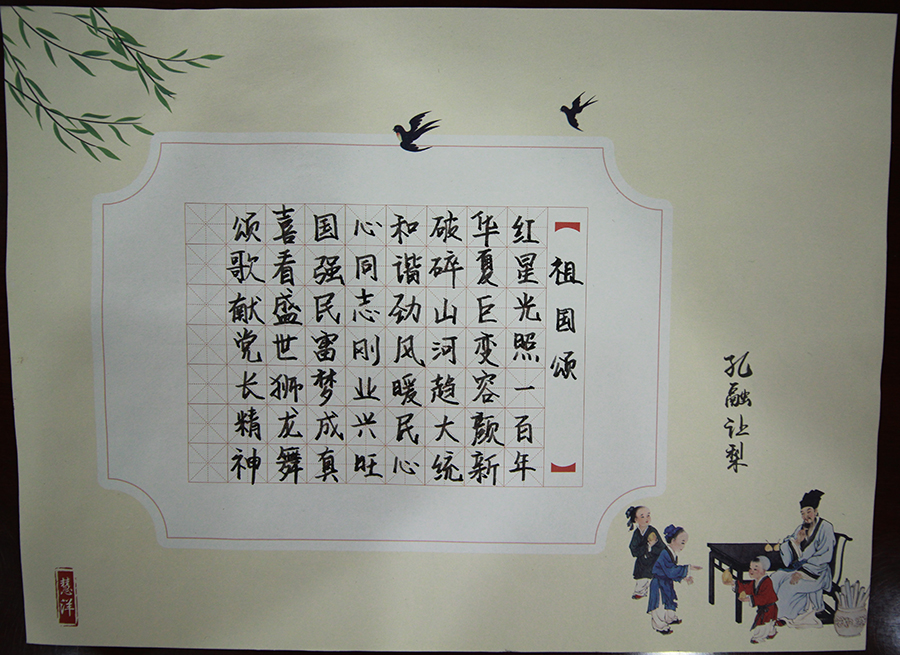 孔融让梨
祖国颂
红星光照一百年
华夏巨变容颜新
破碎山河趋大统
和谐劲风暖民心
心同志刚业兴旺
国强民富梦成真
喜看盛世狮龙舞
颂歌献党长精神
慧洋